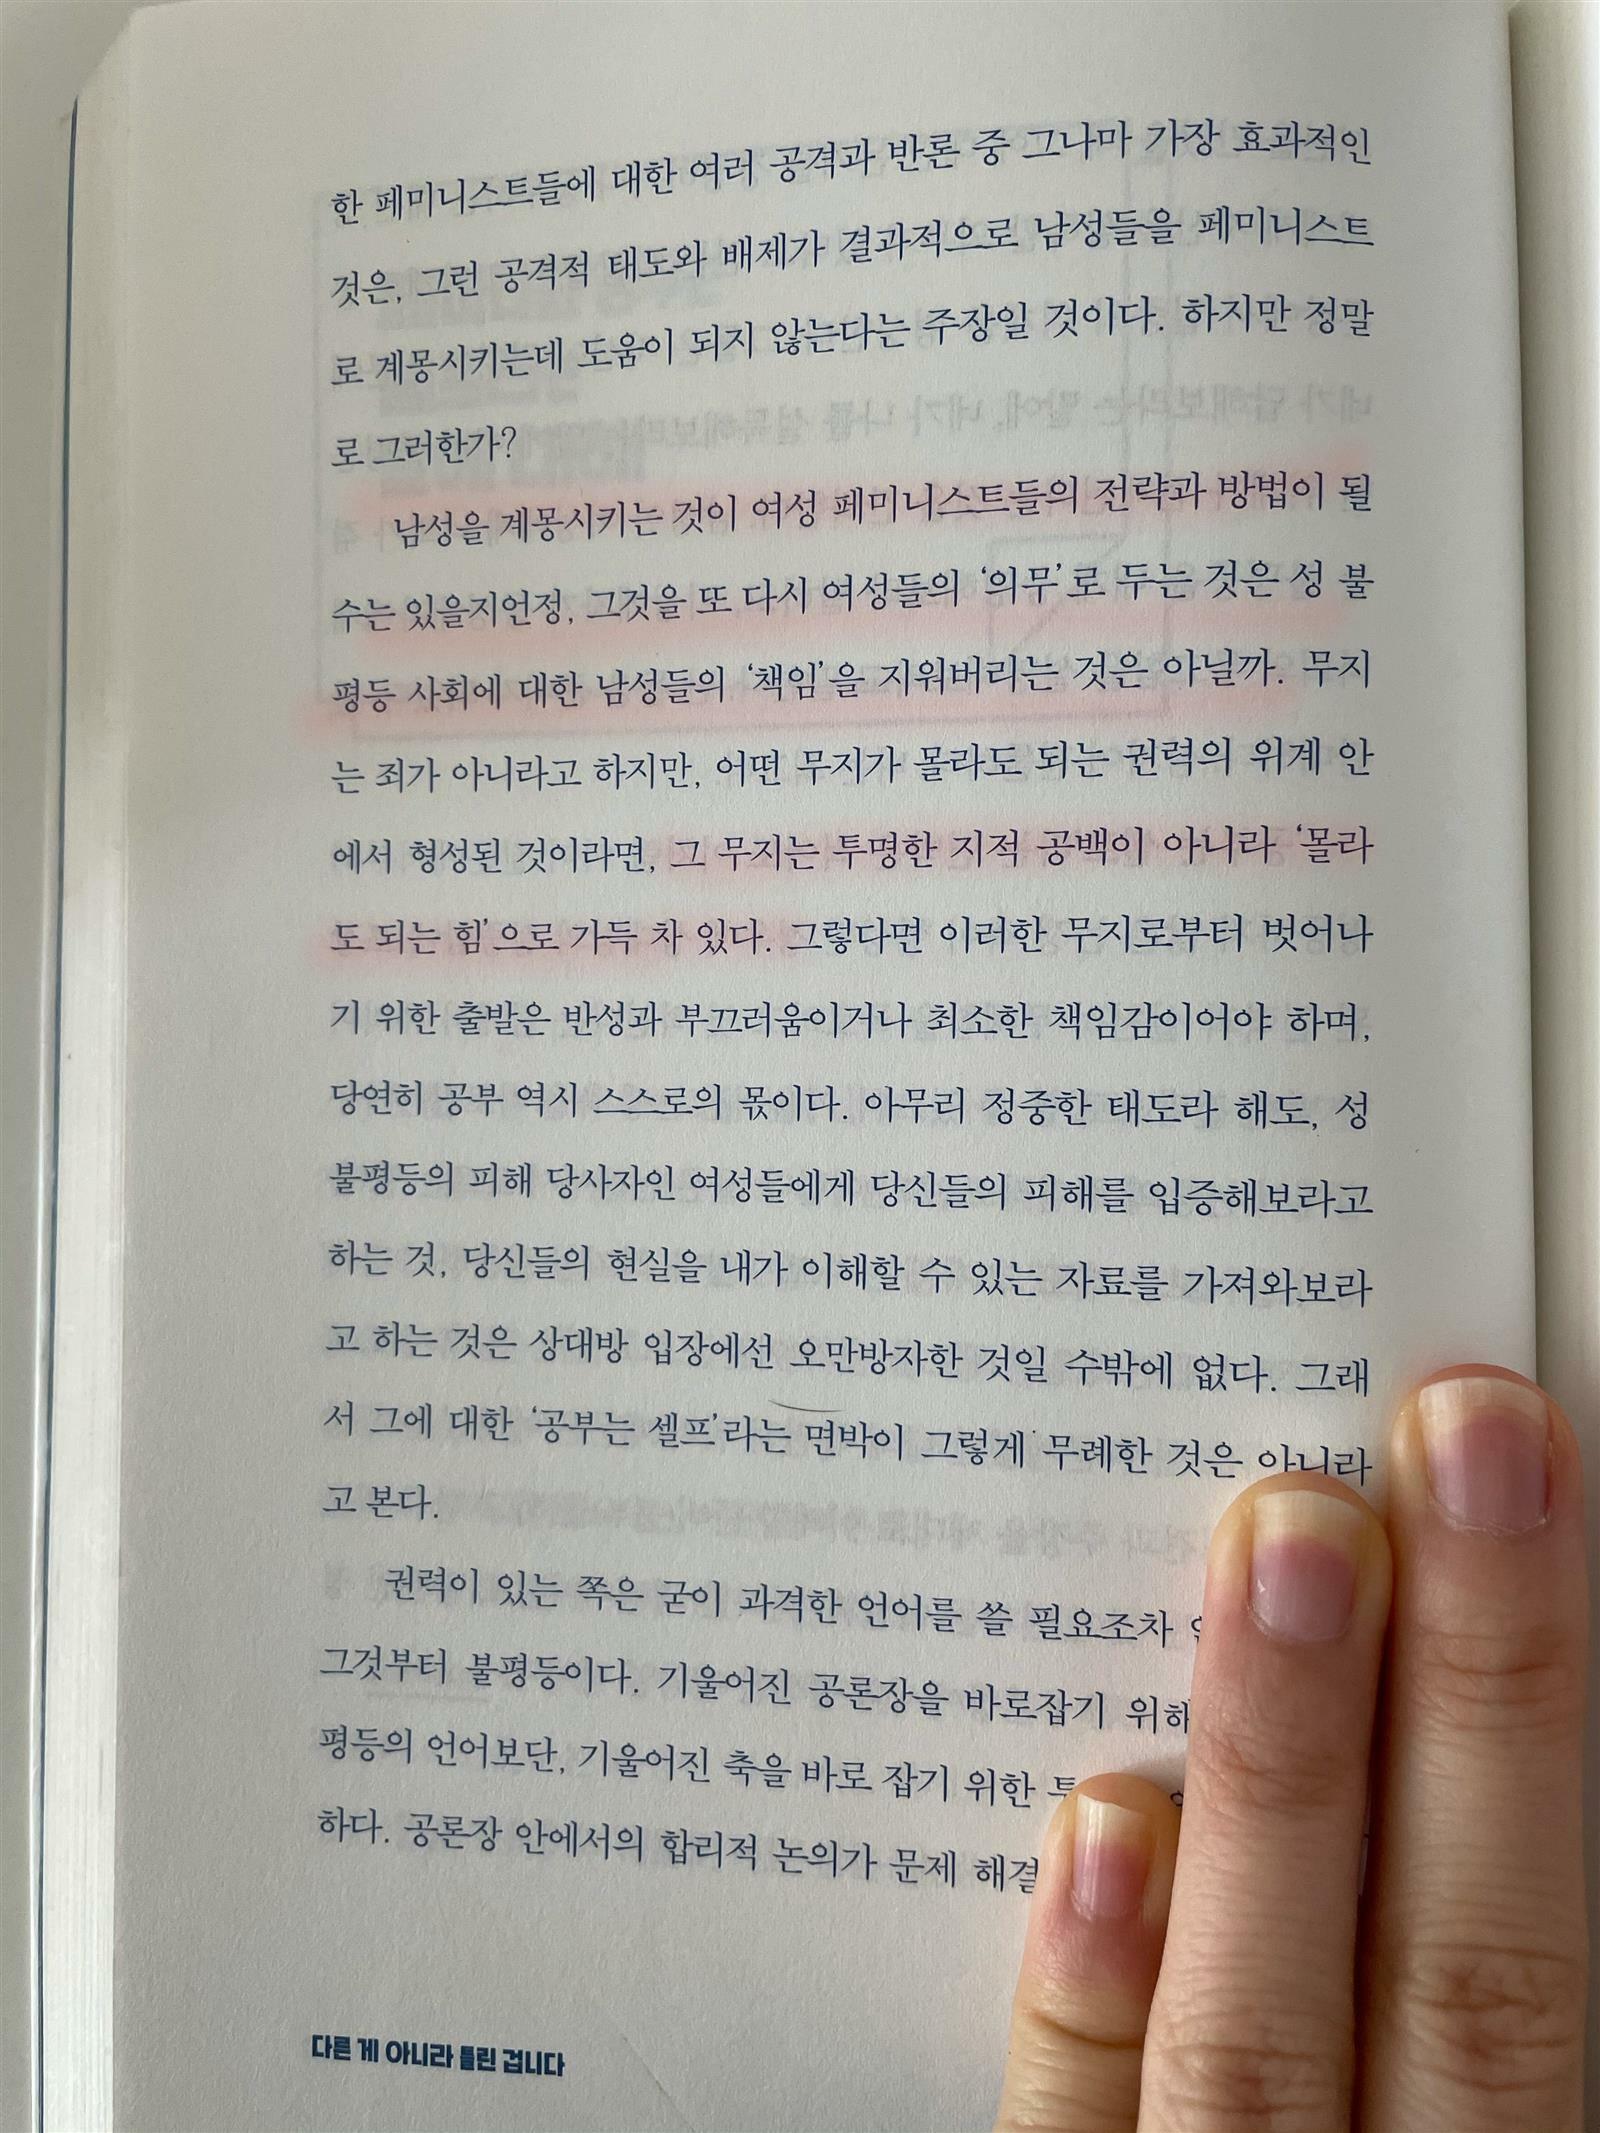 한 페미니스트들에 대한 여러 공격과 반론 중 그나마 가장 효과적인
것은, 그런 공격적 태도와 배제가 결과적으로 남성들을 페미니스트
로 계몽시키는데 도움이 되지 않는다는 주장일 것이다. 하지만 정말
로 그러한가?
남성을 계몽시키는 것이 여성 페미니스트들의 전략과 방법이 될
수는 있을지언정, 그것을 또 다시 여성들의 ‘의무’로 두는 것은 성 불
평등 사회에 대한 남성들의 ‘책임’을 지워버리는 것은 아닐까. 무지
는 죄가 아니라고 하지만, 어떤 무지가 몰라도 되는 권력의 위계 안
에서 형성된 것이라면, 그 무지는 투명한 지적 공백이 아니라 ‘몰라
도 되는 힘’으로 가득 차 있다. 그렇다면 이러한 무지로부터 벗어나
기 위한 출발은 반성과 부끄러움이거나 최소한 책임감이어야 하며,
당연히 공부 역시 스스로의 몫이다. 아무리 정중한 태도라 해도, 성
불평등의 피해 당사자인 여성들에게 당신들의 피해를 입증해보라고
하는 것, 당신들의 현실을 내가 이해할 수 있는 자료를 가져와보라
고 하는 것은 상대방 입장에선 오만방자한 것일 수밖에 없다. 그래
서 그에 대한 ‘공부는 셀프’라는 면박이 그렇게 무례한 것은 아니라
고 본다.
권력이 있는 쪽은 굳이 과격한 언어를 쓸 필요조차
그것부터 불평등이다. 기울어진 공론장을 바로잡기
평등의 언어보단, 기울어진 축을 바로 잡기 위한
하다. 공론장 안에서의 합리적 논의가 문제
다른 게 아니라 틀린 겁니다